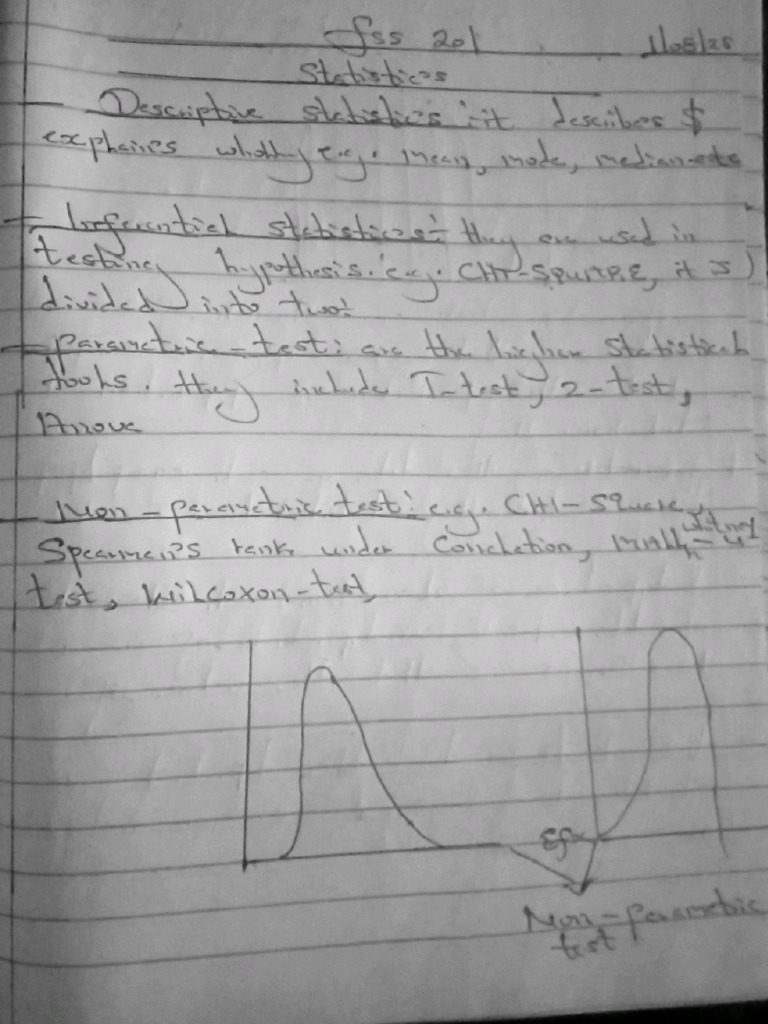 fss 201 1/08/25
Statistics
- Descriptive statistics :- it describes $
explaines wholly e.g. mean, mode, median etc
- Inferential statistics :- they are used in
testing hypothesis. e.g. CHI-SQUARE, it is
divided into two:
- parametric - test: are the higher statistical
tools. they include T-test, Z-test,
Anova
- Non - parametric test: e.g. CHI- square,
Spearman's rank under Correlation, Mann-whitney u
test, Wilcoxon-test,
Efx
Non - parametric
test